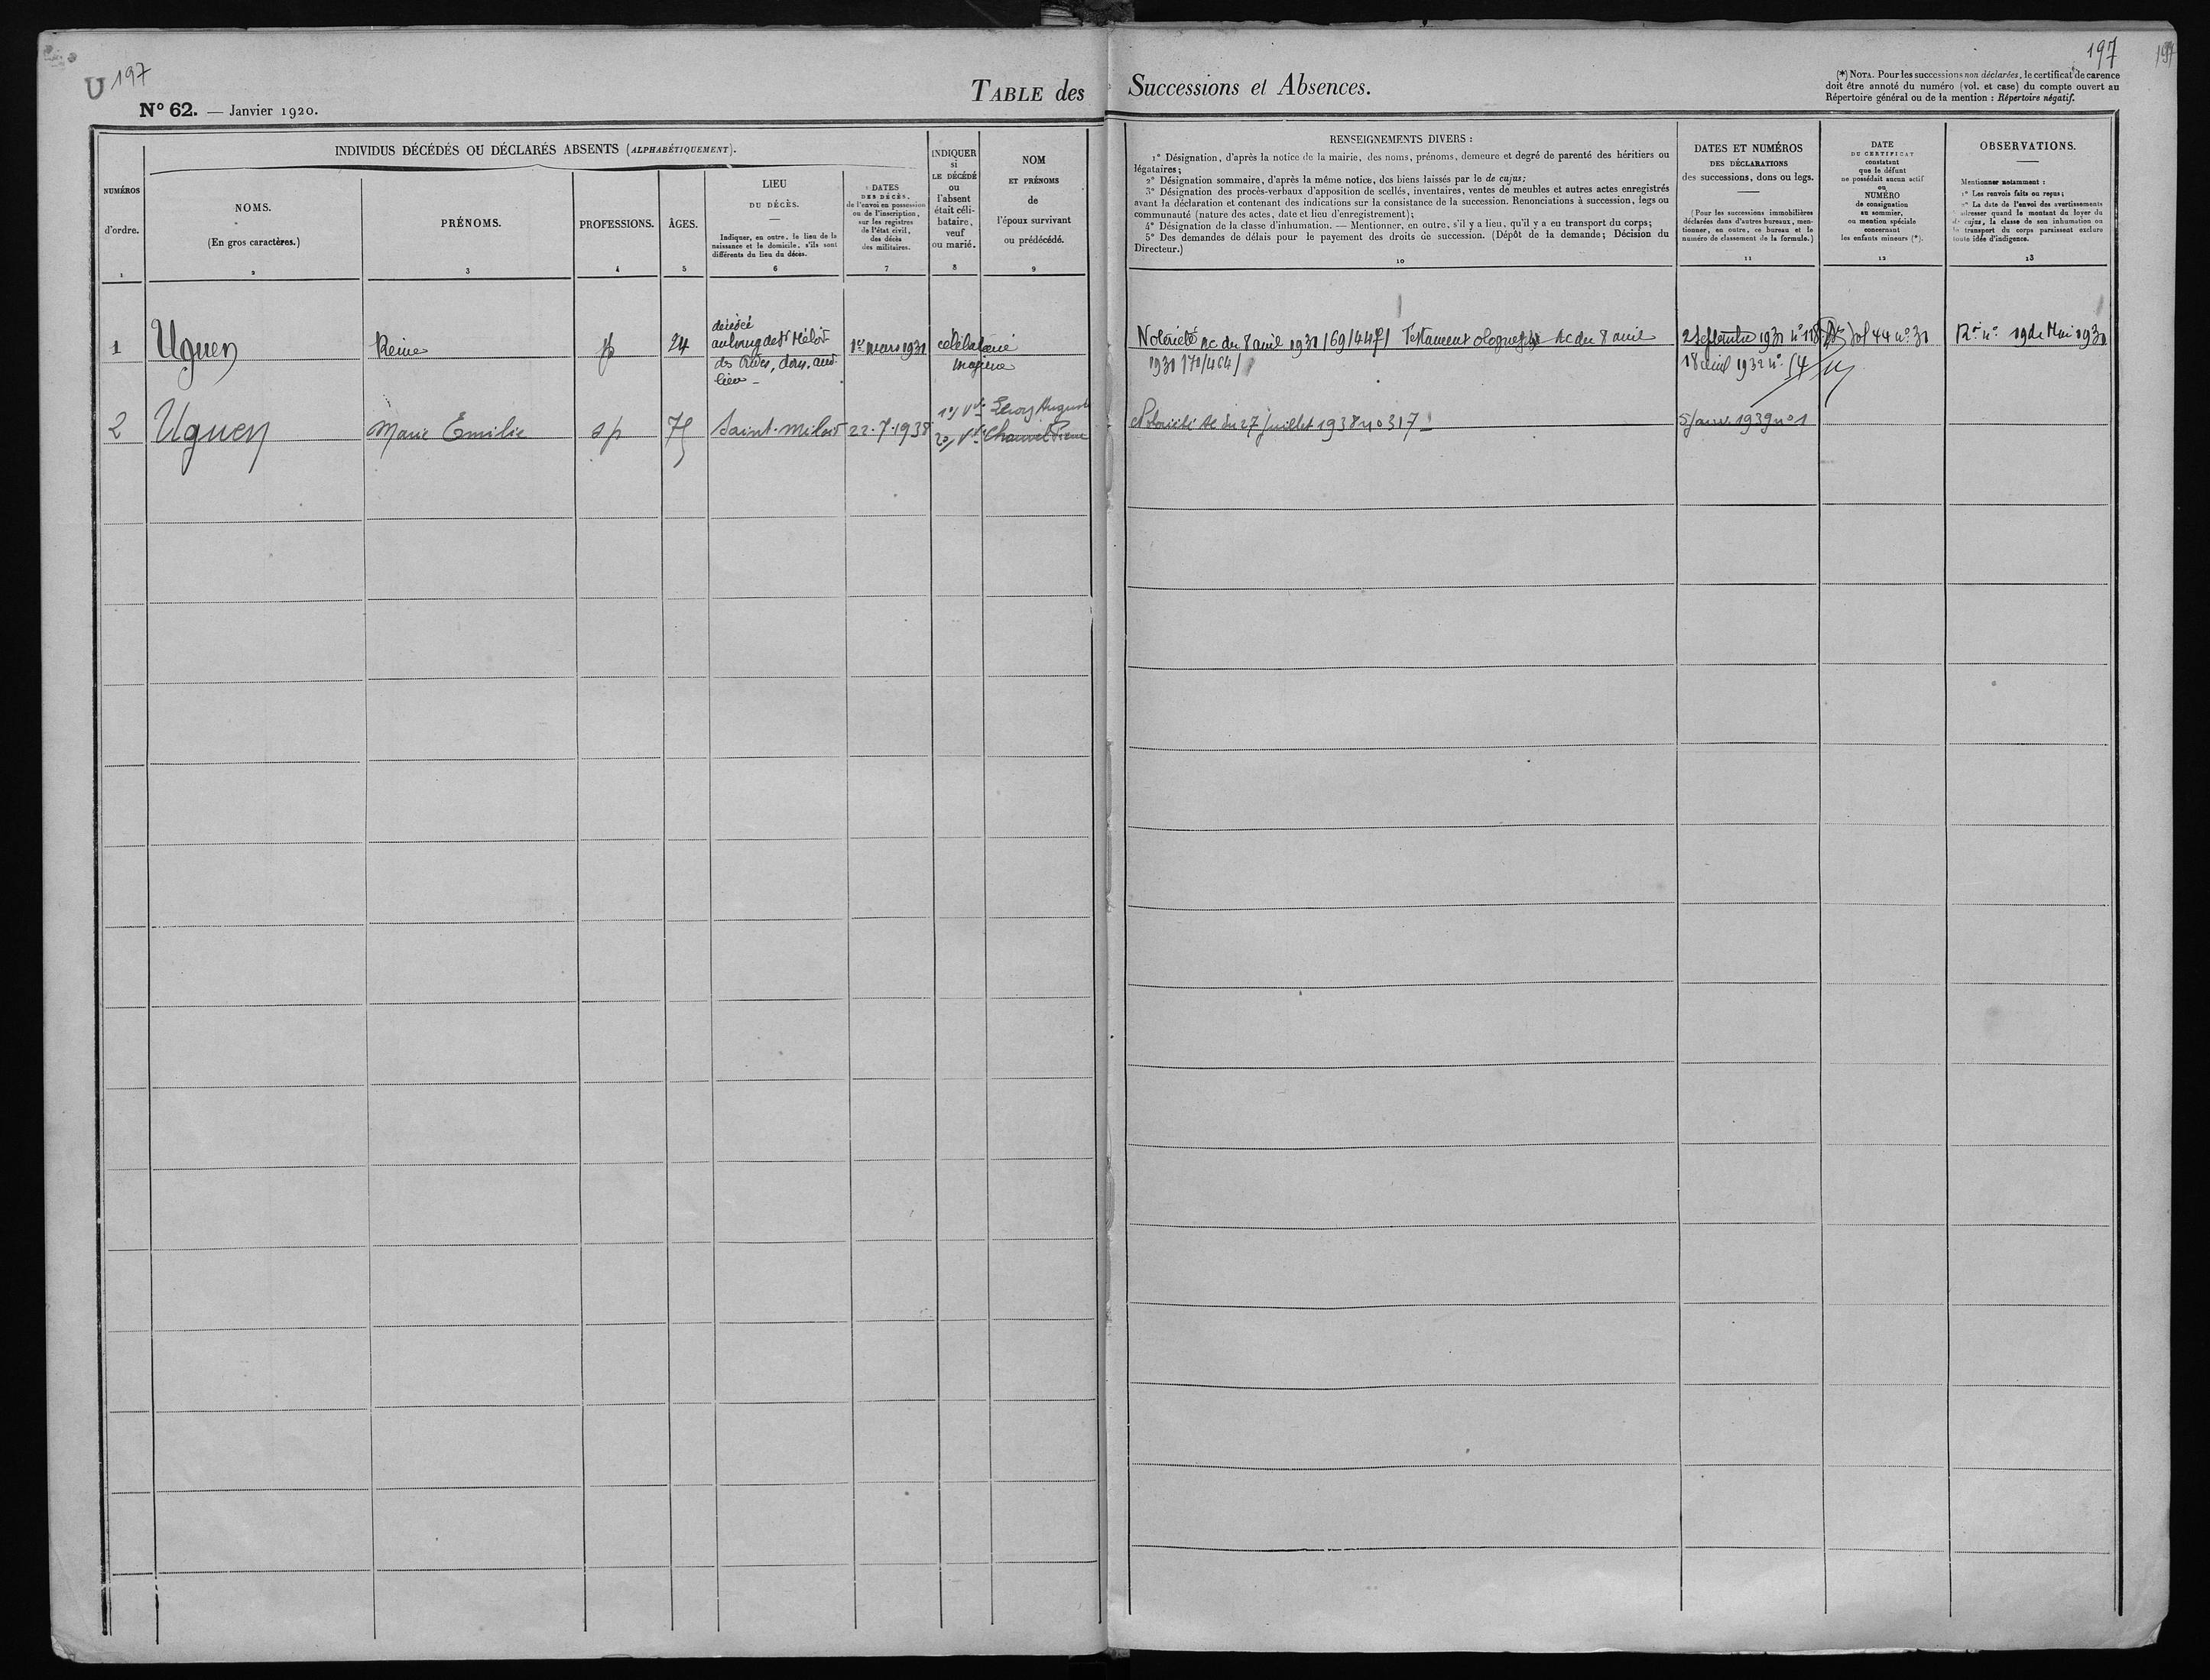 U 197
197
197
N° 62. — Janvier 1920.
TABLE des Successions et Absences.
(*) NOTA. Pour les successions non déclarées, le certificat de carence
doit être annoté du numéro (vol. et case) du compte ouvert au
Répertoire général ou de la mention : Répertoire négatif.
INDIVIDUS DÉCÉDÉS OU DÉCLARÉS ABSENTS (ALPHABÉTIQUEMENT).
NUMÉROS
d'ordre.
1
NOMS.
(En gros caractères.)
2
PRÉNOMS.
3
PROFESSIONS.
4
ÂGES.
5
LIEU
DU DÉCÈS.
—
Indiquer, en outre, le lieu de la
naissance et le domicile, s'ils sont
différents du lieu du décès.
6
DATES
DES DÉCÈS,
de l'envoi en possession
ou de l'inscription,
sur les registres
de l'état civil,
des décès
des militaires.
7
INDIQUER
si
LE DÉCÉDÉ
ou
l'absent
était céli-
bataire,
veuf
ou marié.
8
NOM
ET PRÉNOMS
de
l'époux survivant
ou prédécédé.
9
RENSEIGNEMENTS DIVERS :
1° Désignation, d'après la notice de la mairie, des noms, prénoms, demeure et degré de parenté des héritiers ou
légataires;
2° Désignation sommaire, d'après la même notice, des biens laissés par le de cujus;
3° Désignation des procès-verbaux d'apposition de scellés, inventaires, ventes de meubles et autres actes enregistrés
avant la déclaration et contenant des indications sur la consistance de la succession. Renonciations à succession, legs ou
communauté (nature des actes, date et lieu d'enregistrement);
4° Désignation de la classe d'inhumation. — Mentionner, en outre, s'il y a lieu, qu'il y a eu transport du corps;
5° Des demandes de délais pour le payement des droits de succession. (Dépôt de la demande; Décision du
Directeur.)
10
DATES ET NUMÉROS
DES DÉCLARATIONS
des successions, dons ou legs.
—
(Pour les successions immobilières
déclarées dans d'autres bureaux, men-
tionner, en outre, ce bureau et le
numéro de classement de la formule.)
11
DATE
DU CERTIFICAT
constatant
que le défunt
ne possédait aucun actif
ou
NUMÉRO
de consignation
au sommier,
ou mention spéciale
concernant
les enfants mineurs (*).
12
OBSERVATIONS.
—
Mentionner notamment :
1° Les renvois faits ou reçus;
2° La date de l'envoi des avertissements
à adresser quand le montant du loyer du
de cujus, la classe de son inhumation ou
le transport du corps paraissent exclure
toute idée d'indigence.
13
1 Uguen Reine 24
décédé
au bourg de St Méloir
des Ondes, dom. aud.
lieu —
1er mars 1931
célibataire
majeure
Notoriété Ac du 8 avril 1931 /69/447/ Testament olographe Ac du 8 avril
1931 /70/464/
2 Septembre 1931 n° 118
18 avril 1932 n° 54
44 n° 31
19 de Mai 1931
2 Uguen Marie Emilie sp 75 Saint-Méloir 22-7-1938
1°/ Vve Leroy Auguste
2°/ Vve Chauvel Pierre
Notoriété Ac du 27 juillet 1938 n° 317
5 janv. 1939 n° 1